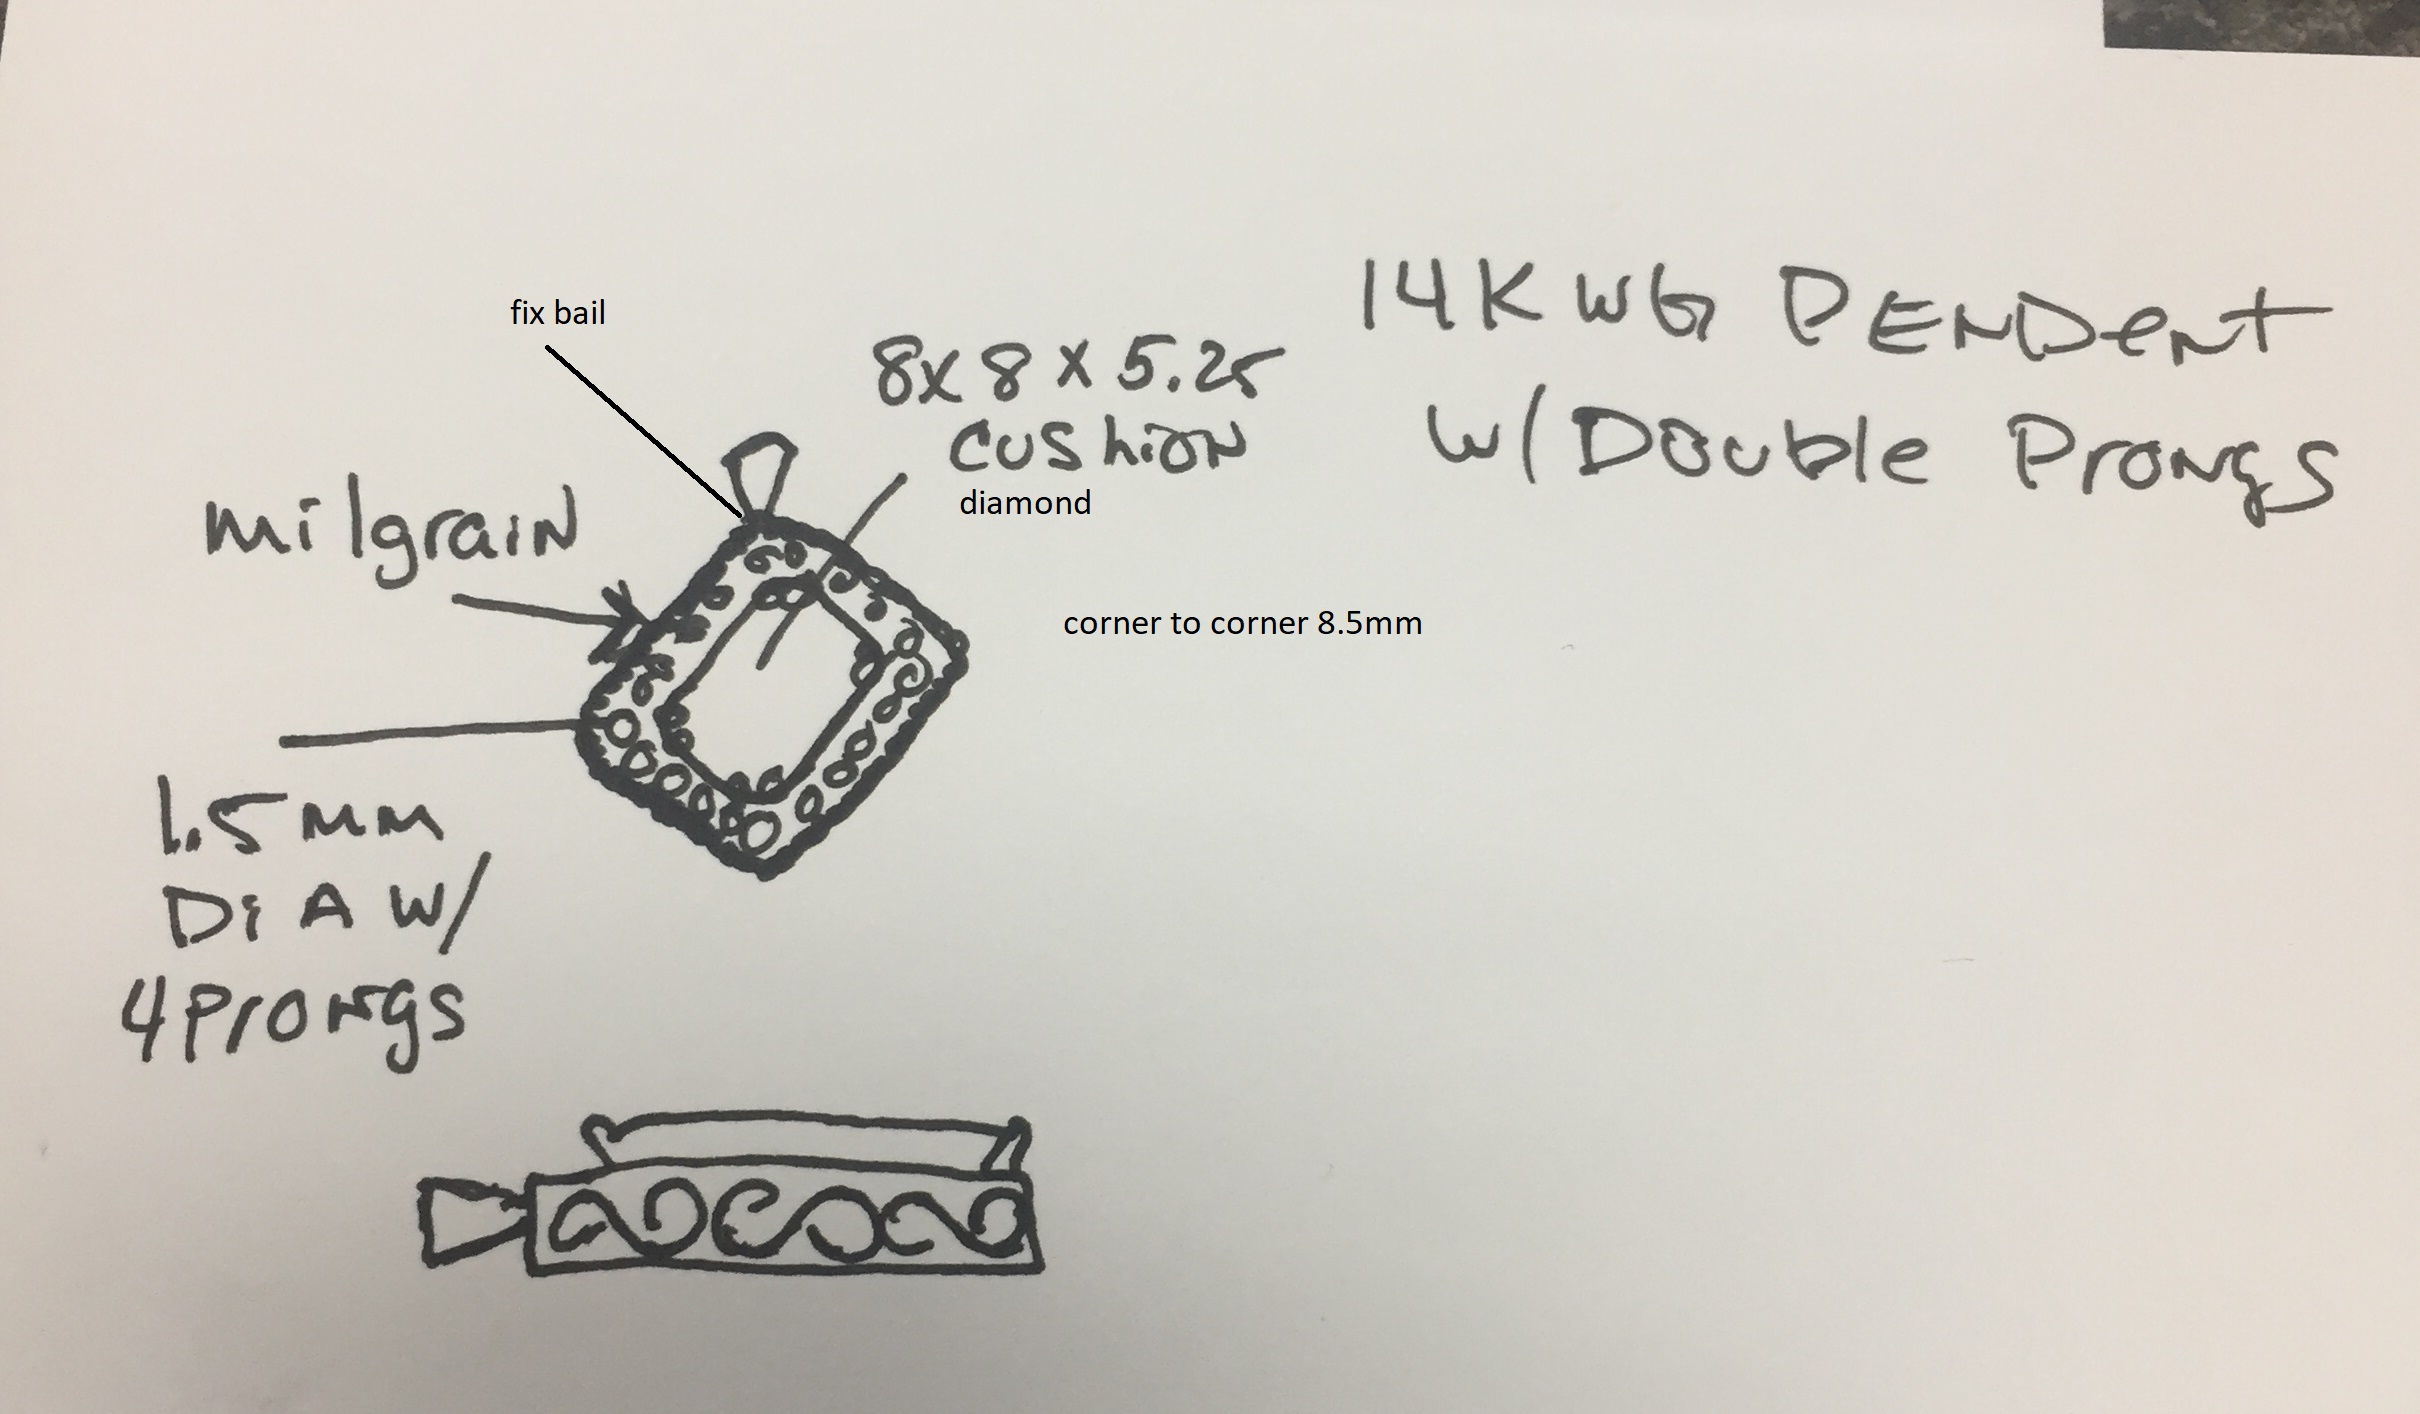 14K WG PENDENT
W/ Double Prongs
fix bail
8x8x5.25
CUShiON
diamond
milgraiN
corner to corner 8.5mm
1.5mm
DiA W/
4 Prongs